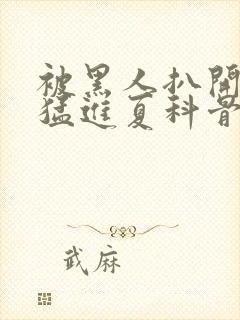 被黑人扒開
猛進夏科骨
武麻